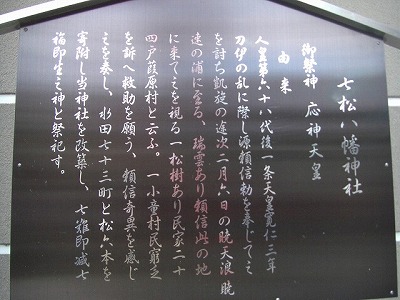 七松八幡神社
御祭神 応神天皇
由来
人皇第六十八代後一条天皇寛仁三年
刀伊の乱に際し源頼信勅を奉じてこ
を討ち凱旋の途次二月六日の暁天浪
速の浦に至る、瑞雲あり頼信此の地
に来てこを視る一松樹あり民家二十
四戸葭原村と云ふ。一小童村民窮乏
を訴へ救助を願う、頼信奇異を感じ
こを奏し、水田七十三町と松六本を
寄附し当神社を改築し、七難即滅七
福即生之神と祭祀す。